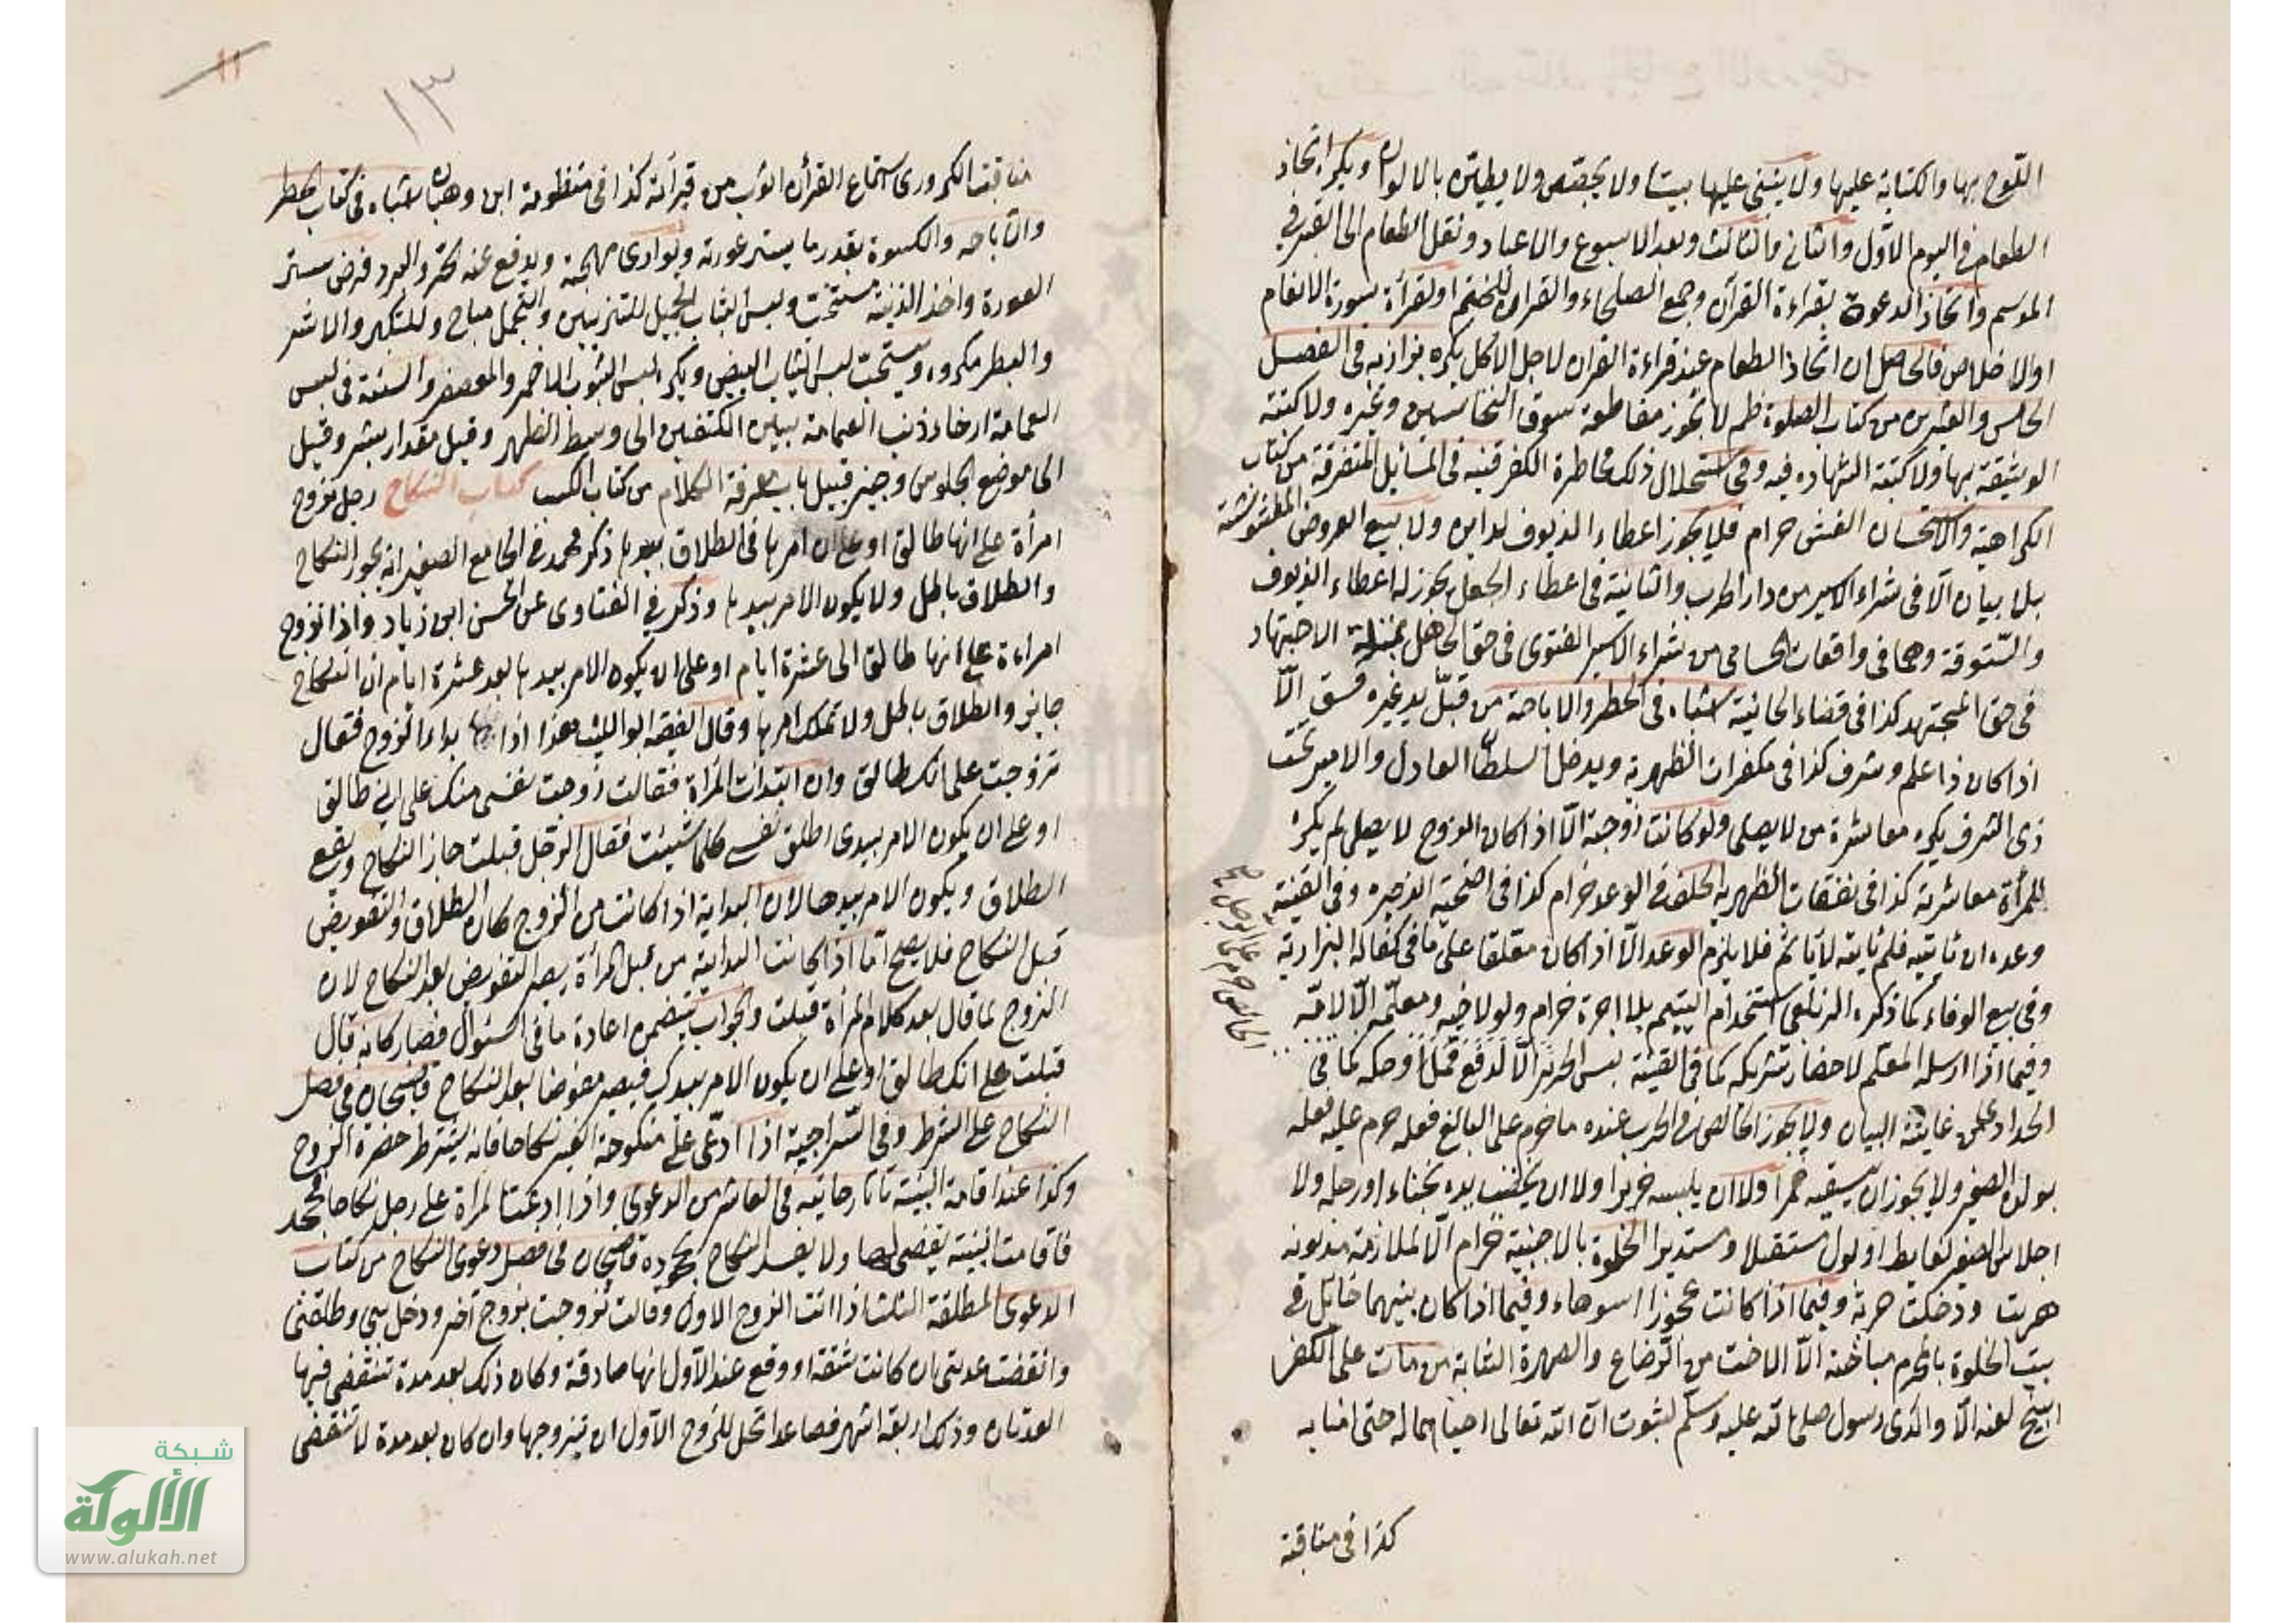 اللوح بها والكتابة عليها ولا يبنى عليها بيت ولا يجصص ولا يطين بالالوان ويكره اتخاذ
الطعام في اليوم الاول والثاني والثالث وبعد الاسبوع والاعياد ونقل الطعام الى القبر في
الموسم واتخاذ الدعوة بقراءة القرآن وجمع الصلحاء والقراء للختم او لقرأة سورة الانعام
او الاخلاص فالحاصل ان اتخاذ الطعام عند قراءة القران لاجل الاكل يكره بزازيه في الفصل
الخامس والعشرين من كتاب الصلوة ظم لا تجوز مقاطعة سوق النخاسين وغيره ولا كتبة
الوثيقة بها ولا كتبة الشهادة فيه وفي استحلال ذلك مخاطرة الكفر قنيه في المسائل المتفرقة من كتاب
الكراهية والاستحسان الغش حرام فلا يجوز اعطاء الزيوف لداين ولا بيع العروض المغشوشة
بلا بيان الا في شراء الاسير من دار الحرب والثانية في اعطاء الجعل يجوز له اعطاء الزيوف
والستوقة وهما في واقعات الحسامي من شراء الاسير الفتوى في حق الجاهل بمنزلة الاجتهاد
في حق المجتهد كذا في قضاء الخانية اشباه في الحظر والاباحة من قبل يد غيره فسق الا
اذا كان ذا علم وشرف كذا في مكفرات الظهيرية ويدخل السلطان العادل والامير تحت
ذى الشرف يكره معاشرة من لا يصلى ولو كانت زوجته الا اذا كان الزوج لا يصلى لم يكره
للمرأة معاشرته كذا في نفقات الظهيريه الخلف في الوعد حرام كذا في اضحية الذخيره وفي القنية
وعده ان ياتيه فلم ياته لا ياثم فلا يلزم الوعد الا اذا كان معلقا على ما في كفالة البزازية
وفي بيع الوفاء كما ذكره الزيلعي استخدام اليتيم بلا اجرة حرام ولو لاخيه ومعلمه الا لامه
وفيما اذا ارسله المعلم لاحضار شريكه كما في القنية لبس الحرير الا لدفع قمل او حكه كما في
الحدادي عن غاية البيان ولا يجوز الخالص في الحرب عنده ما حرم على البالغ فعله حرم عليه فعله
بولده الصغير ولا يجوز ان يسقيه خمرا ولا ان يلبسه حريرا ولا ان يخضب يده بحناء او رجله ولا
اجلاس الصغير لغايط او بول مستقبلا ومستدبرا الخلوة بالاجنبية حرام الا لملازمة مديونه
هربت ودخلت خربة وفيما اذا كانت عجوزا اسوهاء وفيما اذا كان بينهما حائل في
بيت الخلوة بالمحرم مباحة الا الاخت من الرضاع والصهرة الشابة من مات على الكفر
ابيح لعنه الا والدى رسول صلى الله عليه وسلم لثبوت ان الله تعالى احياهما له حتى امنا به
كذا في مناقب
١٣
١١
مناقب الكردرى استماع القرأن اثوب من قرأته كذا في منظومة ابن وهبان اشباه في كتاب الحظر
والاباحه والكسوة بقدر ما يستر عورته ويوارى مهجة ويدفع عنه الحر والبرد فرض ستر
العورة واخذ الزينة مستحب ولبس الثياب الجميل للتزيين والتجمل مباح وللتكبر والاشر
والبطر مكروه ويستحب لبس الثياب البيض ويكره لبس الثوب الاحمر والمعصفر والسنة في لبس
العمامة ارخاء ذنب العمامة بين الكتفين الى وسط الظهر وقيل مقدار شبر وقيل
الى موضع الجلوس وجيز قبيل باب معرفة الكلام من كتاب الكسب كتاب النكاح رجل تزوج
امرأة على انها طالق او على ان امرها في الطلاق بيدها ذكر محمد في الجامع الصغير انه يجوز النكاح
والطلاق باطل ولا يكون الامر بيدها وذكر في الفتاوى عن الحسن ابن زياد واذا تزوج
امراءة على انها طالق الى عشرة ايام او على ان يكون الامر بيدها بعد عشرة ايام ان النكاح
جايز والطلاق باطل ولا تملك امرها وقال الفقيه ابو الليث هذا اذا بداء الزوج فقال
تزوجت على انك طالق وان ابتدأت المرأة فقالت زوجت نفسى منك على اني طالق
او على ان يكون الامر بيدى اطلق نفسى كلما شيئت فقال الرجل قبلت جاز النكاح ويقع
الطلاق ويكون الامر بيدها لان البداية اذا كانت من الزوج كان الطلاق والتفويض
قبل النكاح فلا يصح اما اذا كانت البداية من قبل المرأة يصير التفويض بعد النكاح لان
الزوج لما قال بعد كلام المرأة قبلت والجواب يتضمن اعادة ما في السئوال فصار كانه قال
قبلت على انك طالق او على ان يكون الامر بيدك فيصير مفوضا بعد النكاح قاضيخان في فصل
النكاح على الشرط وفي السراجية اذا ادعى على منكوحة الغير نكاحا فانه يشترط حضرة الزوج
وكذا عند اقامة البينة تاتارخانيه في العاشر من الدعوى واذا ادعت المرأة على رجل نكاحا فجحد
فاقامت البينة يقضى لها ولا يفسد النكاح بجحوده قاضيخان في فصل دعوى النكاح من كتاب
الدعوى المطلقة الثلث اذا اتت الزوج الاول وقالت تزوجت بزوج آخر ودخل بى وطلقنى
وانقضت عدتى ان كانت ثقة او وقع عند الاول انها صادقة وكان ذلك بعد مدة تنقضى فيها
العدتان وذلك اربعة اشهر فصاعدا تحل للزوج الاول ان يتزوجها وان كان بعد مدة لا تنقضى
شبكة
الألوكة
www.alukah.net